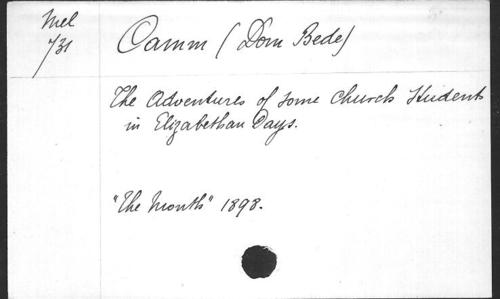 Mel
731
Camm (Dom Bede)
The Adventures of some Church Students
in Elizabethan Days.
"The Month" 1898.